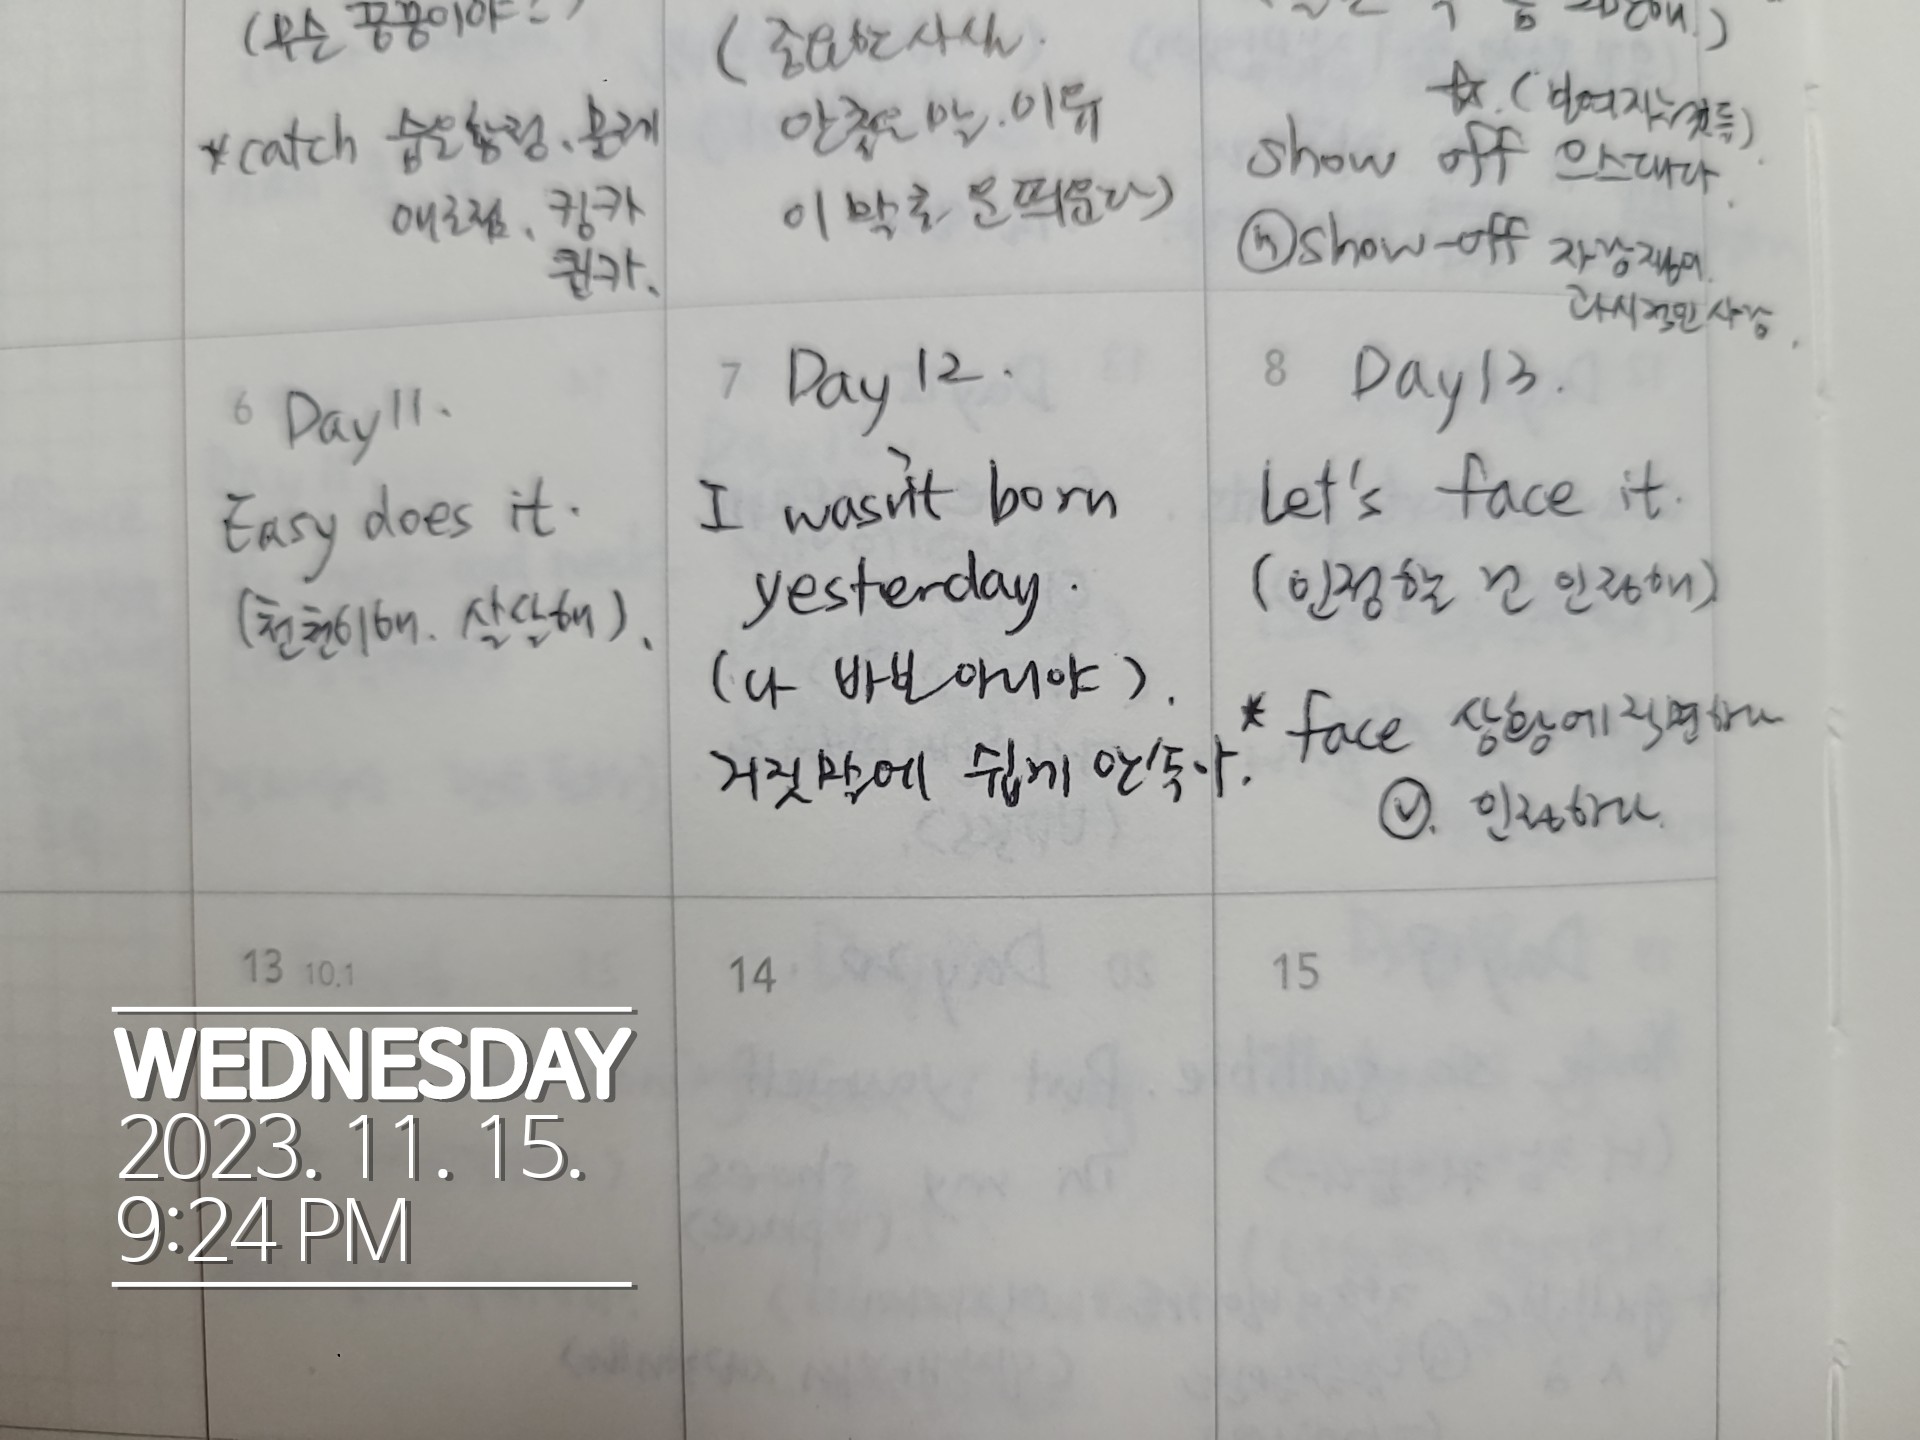 (무슨 꿍꿍이야?)
*catch 숨은함정, 문제
애로점, 킹카
퀸카.
(중요한 사실.
안좋은 말. 이유
이 막 운 띄운다)
☆. (보여지는 것들)
show off 으스대다.
ⓝ show-off 자랑쟁이.
과시적인 사람.
6 Day 11.
Easy does it.
(천천히해. 살살해).
7 Day 12.
I wasn't born
yesterday.
(나 바보 아니야).
거짓말에 쉽게 안속아.
8 Day 13.
Let's face it.
(인정할 건 인정해)
* face 상황에 직면하다
ⓥ. 인정하다.
13 10.1
14
15
WEDNESDAY
2023. 11. 15.
9:24 PM